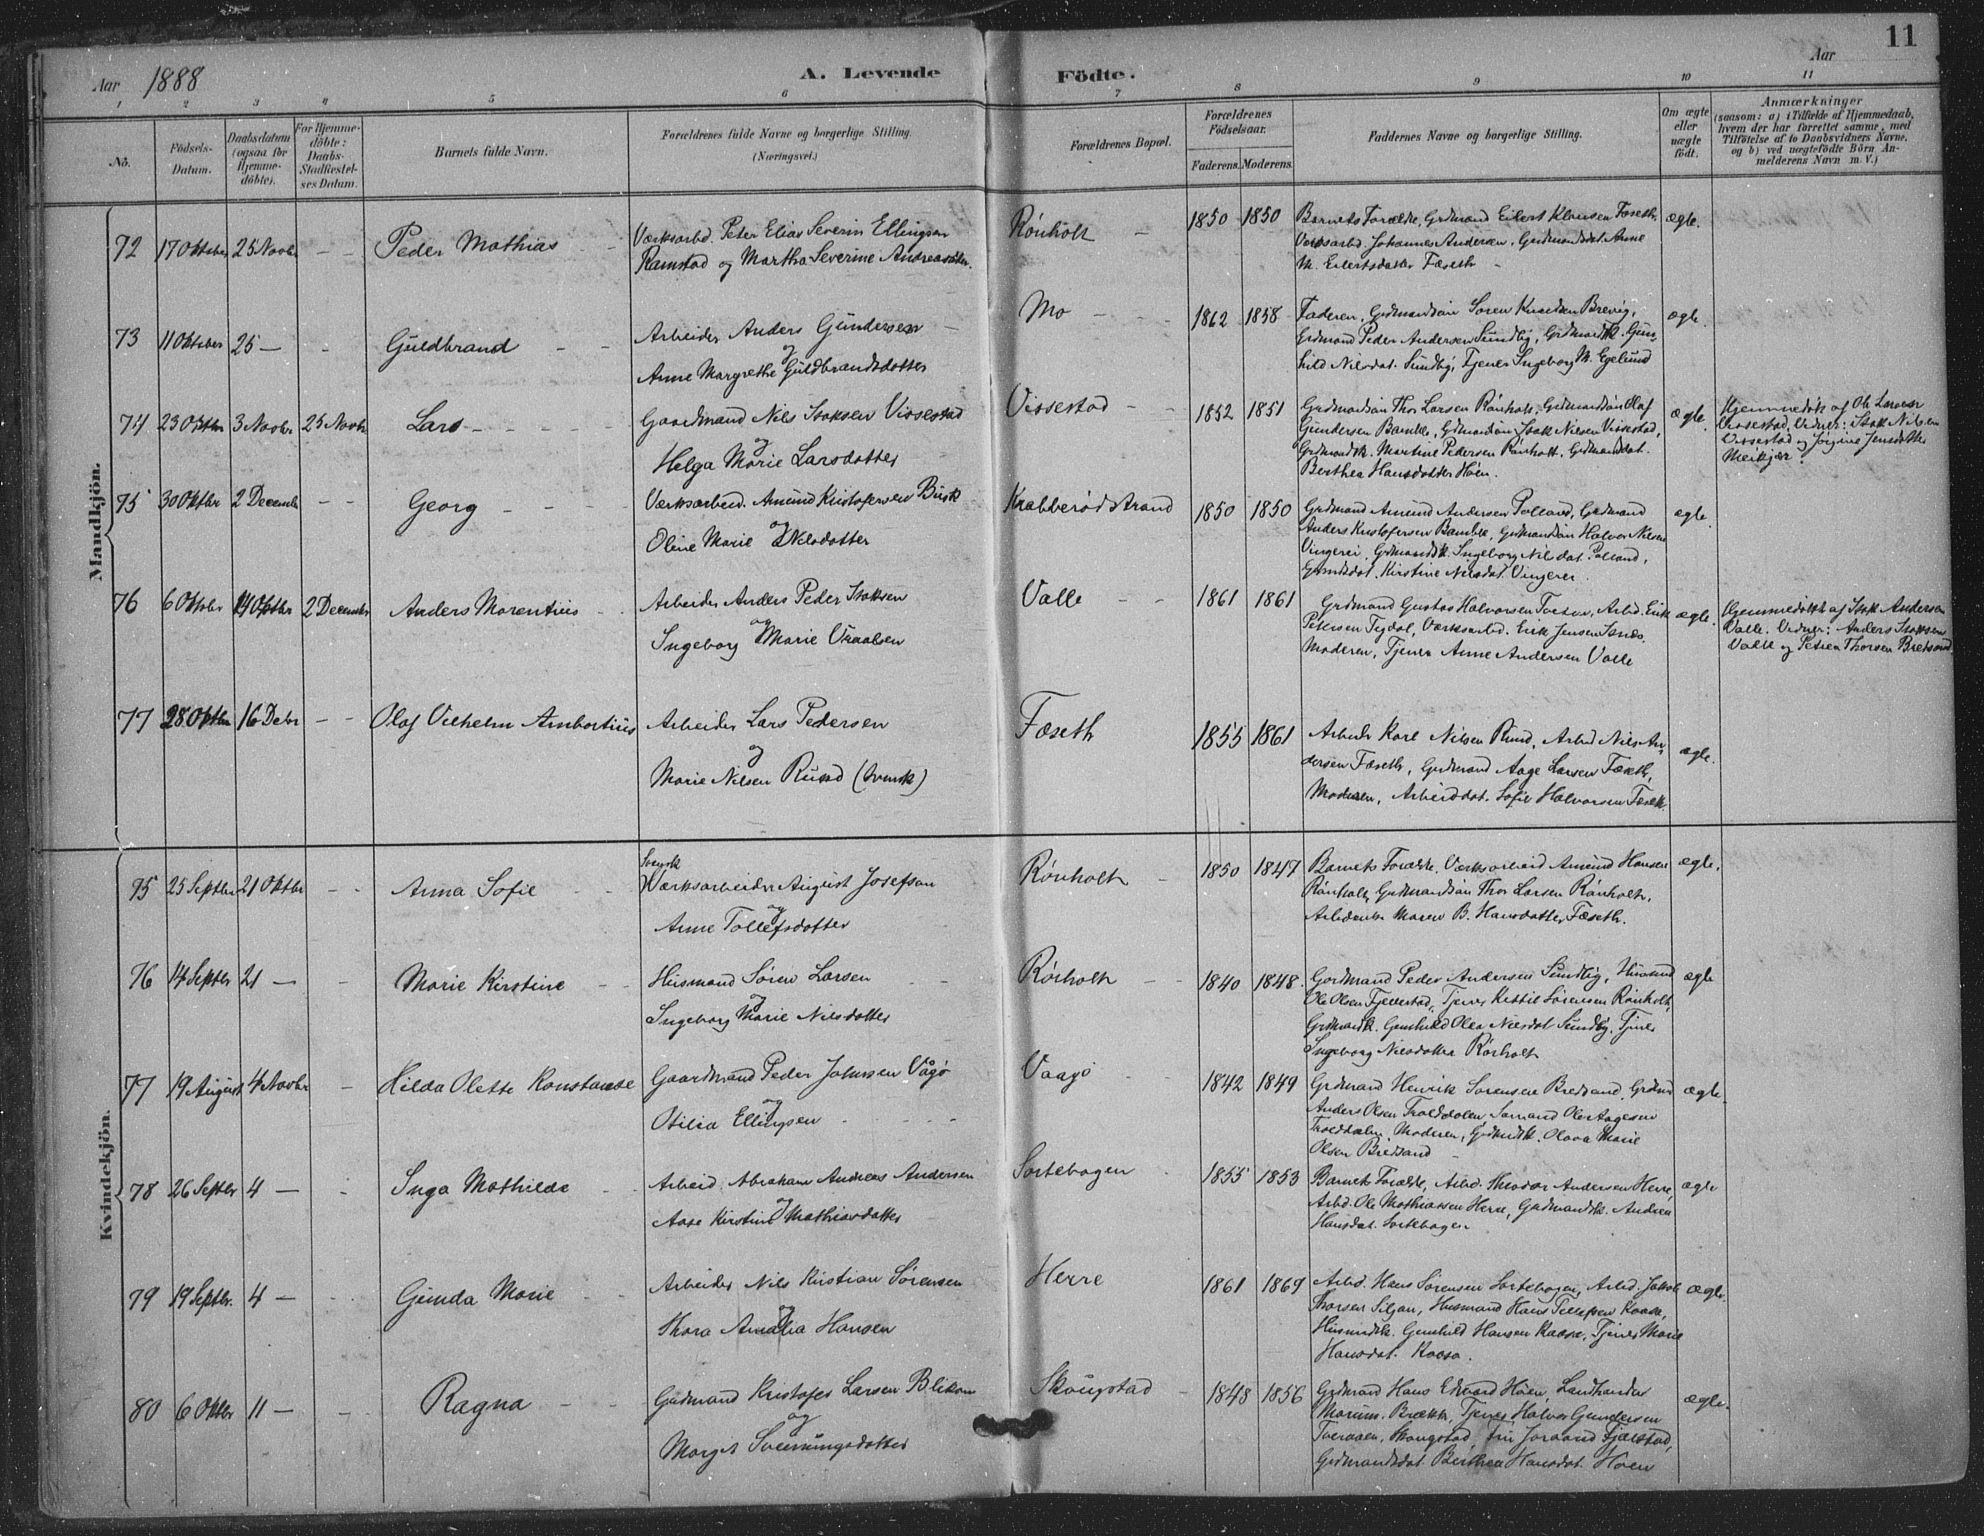 11
Aar 1888
A. Levende Födte.
Aar
1 2 3 4 5 6 7 8 9 10 11
No.
Födsels-Datum.
Daabsdatum (ogsaa for Hjemmedöbte).
For Hjemmedöbte: Daabs-Stadfæstelses Datum.
Barnets fulde Navn.
Forældrenes fulde Navne og borgerlige Stilling. (Næringsvei.)
Forældrenes Bopæl.
Forældrenes Födselsaar.
Faderens. Moderens.
Faddernes Navne og borgerlige Stilling.
Om ægte eller uægte födt.
Anmærkninger (saasom: a) i Tilfælde af Hjemmedaab, hvem der har forrettet samme, med Tilföielse af to Daabsvidners Navne, og b) ved uægtefödte Börn Anmelderens Navn m. V.)
Mandkjön.
72 17 Oktober 25 Novbr Peder Mathias
Værksarbd. Peter Elias Severin Ellingsen
Ramstad og Martha Severine Andreasdtr.
Rönholt 1850 1850
Barnets Forældre, Grdmand Eilert Klausen Fæseth,
Værksarbd. Johannes Andersen, Grdmandsdat. Anne
M. Eilertsdatter Fæseth
ægte.
73 11 Oktober 25 — Guldbrand
Arbeider Anders Gundersen
og
Anne Margrethe Guldbrandsdatter
Mo 1862 1858
Faderen, Grdmandsön Sören Knudsen Brevig,
Grdmand Peder Andersen Sundby, Grdmandsk. Gun-
hild Nilsdat. Sundby, Tjener Ingeborg M. Egelund
ægte.
74 23 Oktbr 3 Novbr 25 Novbr Lars
Gaardmand Nils Isaksen Vissestad
og
Helga Marie Larsdatter
Vissestad 1852 1851
Grdmandsön Thor Larsen Rönholt, Grdmandsön Olaf
Gundersen Bamble, Grdmandsön Isak Nilsen Vissestad,
Grdmandsk. Martine Pedersen Rönholt, Grdmanddat.
Berthea Hansdatter Höen.
ægte.
Hjemmedöbt af Ole Larsen
Vissestad. Vidner: Isak Nilsen
Vissestad og Jörgine Jensdatter
75 30 Oktbr 2 December Georg
Værksarbeid. Amund Kristofersen Busk
og
Oline Marie Nilsdatter
Krabberödstrand 1850 1850
Grdmand Amund Andersen Polland, Grdmand
Anders Kristofersen Bamble, Grdmandsön Halvor Nilsen
Vingerei, Grdmandsk. Ingeborg Nilsdat. Polland,
Grmdsdat. Kirstine Nilsdat. Vingerei.
ægte.
76 6 Oktober 14 Oktbr 2 December Anders Marentius
Arbeider Anders Peder Isaksen
og
Ingeborg Marie Vraalsen
Valle 1861 1861
Grdmand Gustav Halvorsen Tveten, Arbd. Erik
Petersen Tygdal, Værksarbd. Erik Jensen Isnæs,
Moderen, Tjener Anne Andersen Valle
ægte.
Hjemmedöbt af Isak Andersen
Valle. Vidner: Anders Isaksen
Valle og Petrea Thorsen Bredsand.
77 28 Oktbr 16 Debr Olaf Vilhelm Ambortius
Arbeider Lars Pedersen
og
Marie Nilsen Rund (svensk)
Fæseth 1855 1861
Arbeider Karl Nilsen Rund, Arbd Nils An-
dersen Fæseth, Grdmand Aage Larsen Fæseth,
Moderen, Arbeiddat. Sofie Halvorsen Fæseth.
ægte.
Kvindekjön.
75 25 Septbr 21 Oktbr Anna Sofie
Svensk
Værksarbeider August Josefsen
og
Anne Tollefsdatter
Rönholt 1850 1847
Barnets Forældre, Værksarbeid Amund Hansen
Rönholt, Grdmandsön Thor Larsen Rönholt,
Arbdenke Maren B. Hansdatter Fæseth.
ægte.
76 14 Septbr 21 — Marie Kirstine
Husmand Sören Larsen
og
Ingeborg Marie Nilsdatter
Rörholt 1840 1848.
Gordmand Peder Andersen Sundby, Husmd
Ole Olsen Fjellestad, Tjener Kittil Sörensen Rönholt,
Grdmandk. Gunhild Olea Nilsdat Sundby, Tjener
Ingeborg Nilsdatter Rörholt
ægte
77 19 August 4 Novbr Hilda Olette Konstanse
Gaardmand Peder Johnsen Vågö
og
Otilia Ellingsen
Vaagö 1842 1849
Grdmand Henrik Sörensen Bredsand, Grdmd
Anders Olsen Trolddalen, Sömand Ole Aagesen
Trolddalen, Moderen, Grdmdsk. Olava Marie
Olsen Bredsand
ægte.
78 26 Septbr 4 — Inga Mathilde
Arbeid. Abraham Andreas Andersen
og
Aase Kirstine Mathiasdatter
Sortebogen 1855 1853
Barnets Forældre, Arbd. Theodor Andersen Herre,
Arbd. Ole Mathiassen Herre, Grdmandsk. Andrea
Hansdat. Sortebogen
ægte
79 19 Septbr. 4 — Gunda Marie
Arbeider Nils Kirstian Sörensen
og
Thora Amalia Hansen
Herre 1861 1869
Arbd. Hans Sörensen Sortebogen, Arbd. Jakob
Thorsen Siljan, Husmand Hans Tellefsen Kaasa,
Husmdsk. Gunhild Hansen Kaasa, Tjener Marie
Hansdat. Kaasa.
ægte.
80 6 Oktbr 11 — Ragna
Grdmand Kristofer Larsen Blikom
og
Margit Sveinungsdatter
Skougstad 1848 1856
Grdmand Hans Edvard Höen, Landhandler
Marum. Brække, Tjener Halvor Gundersen
Tveraaen, Skougstad, Fru Joraand Fjelstad,
Grdmandsdat Berthea Hansdat. Höen
ægte.